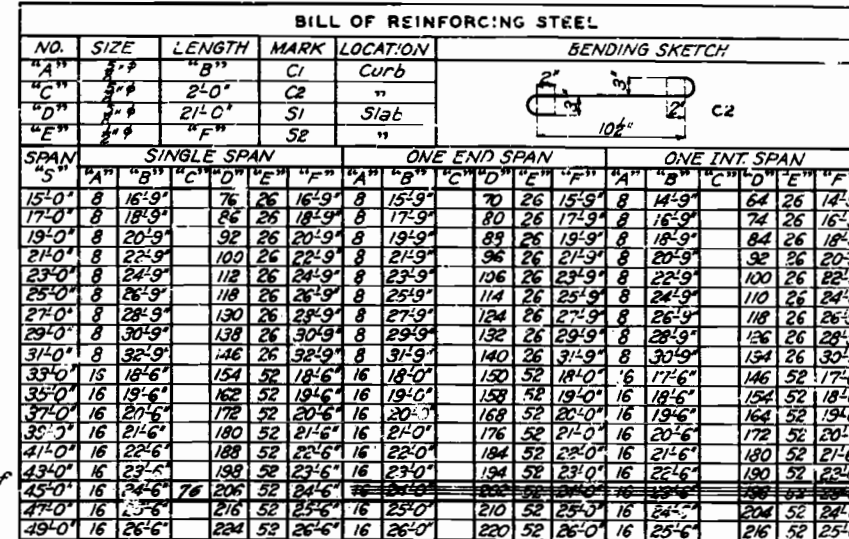 BILL OF REINFORCING STEEL
NO. SIZE LENGTH MARK LOCATION BENDING SKETCH
"A" 5/8"φ "B" C1 Curb
"C" 5/8"φ 2'-0" C2 "
"D" 5/8"φ 21'-0" S1 Slab
"E" 1/2"φ "F" S2 "
2" 3" 3" 2" C2
10½"
SPAN "S" SINGLE SPAN ONE END SPAN ONE INT. SPAN
"A" "B" "C" "D" "E" "F" "A" "B" "C" "D" "E" "F" "A" "B" "C" "D" "E" "F
15'-0" 8 16'-9" 76 26 16'-9" 8 15'-9" 70 26 15'-9" 8 14'-9" 64 26 14'-9
17'-0" 8 18'-9" 86 26 18'-9" 8 17'-9" 80 26 17'-9" 8 16'-9" 74 26 16'-
19'-0" 8 20'-9" 92 26 20'-9" 8 19'-9" 89 26 19'-9" 8 18'-9" 84 26 18'-
21'-0" 8 22'-9" 100 26 22'-9" 8 21'-9" 96 26 21'-9" 8 20'-9" 92 26 20'-
23'-0" 8 24'-9" 112 26 24'-9" 8 23'-9" 106 26 23'-9" 8 22'-9" 100 26 22'-
25'-0" 8 26'-9" 118 26 26'-9" 8 25'-9" 114 26 25'-9" 8 24'-9" 110 26 24'-
27'-0" 8 28'-9" 130 26 28'-9" 8 27'-9" 124 26 27'-9" 8 26'-9" 118 26 26'-
29'-0" 8 30'-9" 138 26 30'-9" 8 29'-9" 132 26 29'-9" 8 28'-9" 126 26 28'-
31'-0" 8 32'-9" 146 26 32'-9" 8 31'-9" 140 26 31'-9" 8 30'-9" 134 26 30'-
33'-0" 16 18'-6" 154 52 18'-6" 16 18'-0" 150 52 18'-0" 16 17'-6" 146 52 17'-
35'-0" 16 19'-6" 162 52 19'-6" 16 19'-0" 158 52 19'-0" 16 18'-6" 154 52 18'-
37'-0" 16 20'-6" 172 52 20'-6" 16 20'-0" 168 52 20'-0" 16 19'-6" 164 52 19'-
39'-0" 16 21'-6" 180 52 21'-6" 16 21'-0" 176 52 21'-0" 16 20'-6" 172 52 20'-
41'-0" 16 22'-6" 188 52 22'-6" 16 22'-0" 184 52 22'-0" 16 21'-6" 180 52 21'-6
43'-0" 16 23'-6" 198 52 23'-6" 16 23'-0" 194 52 23'-0" 16 22'-6" 190 52 22'-
45'-0" 16 24'-6" 76 206 52 24'-6"
47'-0" 16 25'-6" 216 52 25'-6" 16 25'-0" 210 52 25'-0" 16 24'-6" 204 52 24'-
49'-0" 16 26'-6" 224 52 26'-6" 16 26'-0" 220 52 26'-0" 16 25'-6" 216 52 25'-